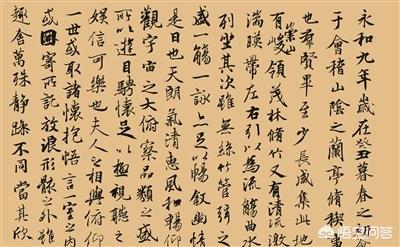 永和九年歲在癸丑暮春之初會
于會稽山陰之蘭亭脩稧
也羣賢畢至少長咸集此地
有崇山峻領茂林脩竹又有清流激
湍暎帶左右引以為流觴曲水
列坐其次雖無絲竹管弦之
盛一觴一詠亦足以暢敘幽情
是日也天朗氣清惠風和暢仰
觀宇宙之大俯察品類之盛
所以遊目騁懷足以極視聽之
娛信可樂也夫人之相與俯仰
一世或取諸懷抱悟言一室之內
或因寄所託放浪形骸之外雖
趣舍萬殊靜躁不同當其欣
悟空问答